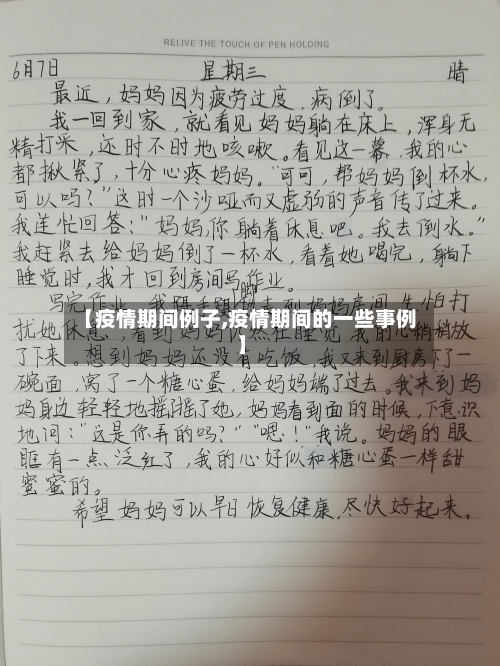 RELIVE THE TOUCH OF PEN HOLDING
6月7日 星期三 晴
最近，妈妈因为疲劳过度，病倒了。
我一回到家，就看见妈妈躺在床上，浑身无
精打采，还时不时地咳嗽。看见这一幕，我的心
都揪紧了，十分心疼妈妈。“可可，帮妈妈倒杯水，
可以吗？”这时一个沙哑而又虚弱的声音传了过来。
我连忙回答：“妈妈，你躺着休息吧。我去倒水。”
我赶紧去给妈妈倒了一杯水，看着她喝完，躺下
睡觉时，我才回到房间写作业。
脚
写完作业，我蹑手蹑 走到妈妈房间，生怕打
【疫情期间例子,疫情期间的一些事例
】
扰她休息，看到妈妈 然在睡觉，我的心稍稍放
了下来。想到妈妈还没有吃饭，我又来到厨房下了一
碗面，窝了一个糖心蛋，给妈妈端了过去。我来到妈
妈身边轻轻地摇摇了她，妈妈看到面的时候，下意识
地问：“这是你弄的吗？”“嗯！”我说。妈妈的眼
眶有一点泛红了，我的心好似和糖心蛋一样甜
蜜蜜的。
希望妈妈可以早日恢复健康，尽快好起来。